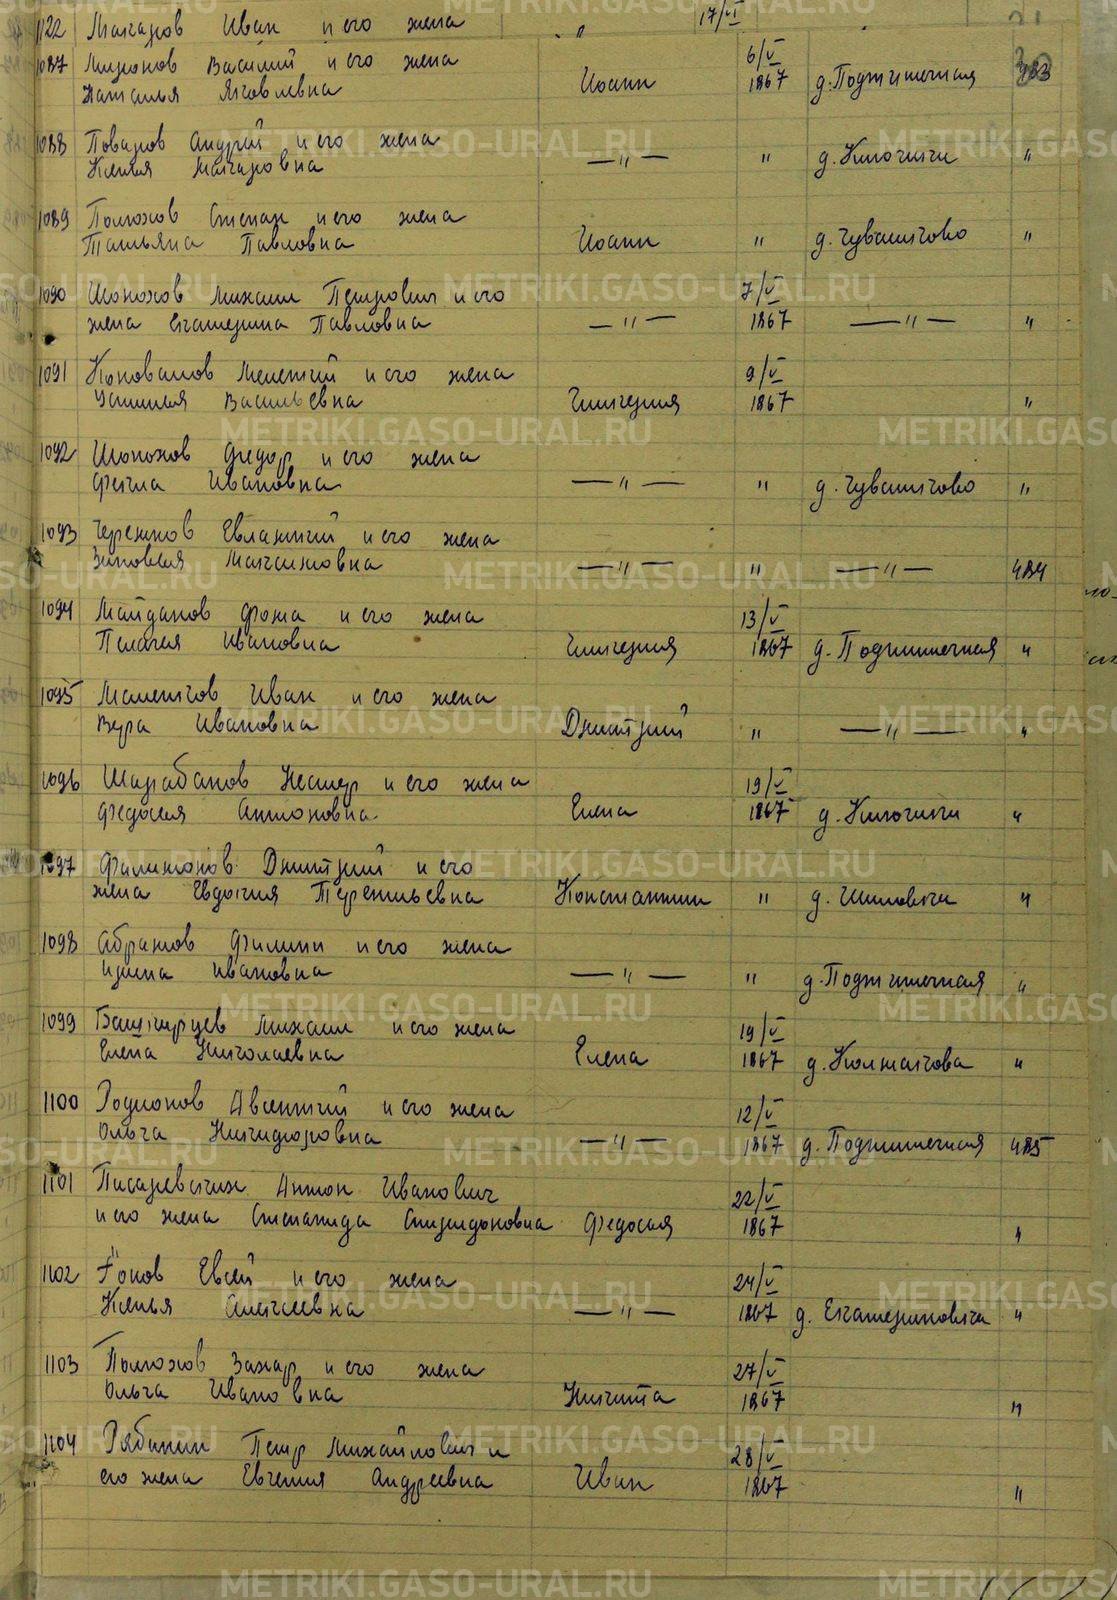 1122 Макаров Иван и его жена " 17/VI
1087 Миронов Василий и его жена 6/V
Наталья Яковлевна Иоанн 1867 д. Поджишечная 483
1088 Поваров Андрей и его жена
Ксенья Макаровна —"— " д. Ключики "
1089 Полюхов Степан и его жена
Татьяна Павловна Иоанн " д. Чувашково "
1090 Шопохов Михаил Петрович и его 7/V
жена Екатерина Павловна —"— 1867 —"— "
1091 Коновалов Мелентий и его жена 9/V
Устинья Васильевна Гликерия 1867 "
1092 Шопохов Федор и его жена
Фекла Ивановна —"— " д. Чувашково "
1093 Черепков Евлантий и его жена
Зиновья Максимовна —"— " —"— 484
1094 Майданов Фома и его жена 13/V
Пелагея Ивановна Гликерия 1867 д. Поджишечная "
1095 Малетков Иван и его жена
Вера Ивановна Дмитрий " —"— "
1096 Шарабанов Нестер и его жена 19/V
Федосья Антоновна Елена 1867 д. Ключики "
1097 Филимонов Дмитрий и его
жена Евдокия Терентьевна Константин " д. Шиловки "
1098 Абрамов Филипп и его жена
Ирина Ивановна —"— " д. Поджишечная "
1099 Башкирцев Михаил и его жена 19/V
Елена Николаевна Елена 1867 д. Колмакова "
1100 Родионов Авсентий и его жена 12/V
Ольга Никифоровна —"— 1867 д. Поджишечная 485
1101 Писаревских Антон Иванович 22/V
и его жена Степанида Спиридоновна Федосья 1867 "
1102 Евсей и его жена 24/V
Ксенья Алексеевна —"— 1867 д. Екатериновка "
1103 Полюхов Захар и его жена 27/V
Ольга Ивановна Никита 1867 "
1104 Рябинин Петр Михайлович и 28/V
его жена Евгения Андреевна Иван 1867 "
METRIKI.GASO-URAL.RU